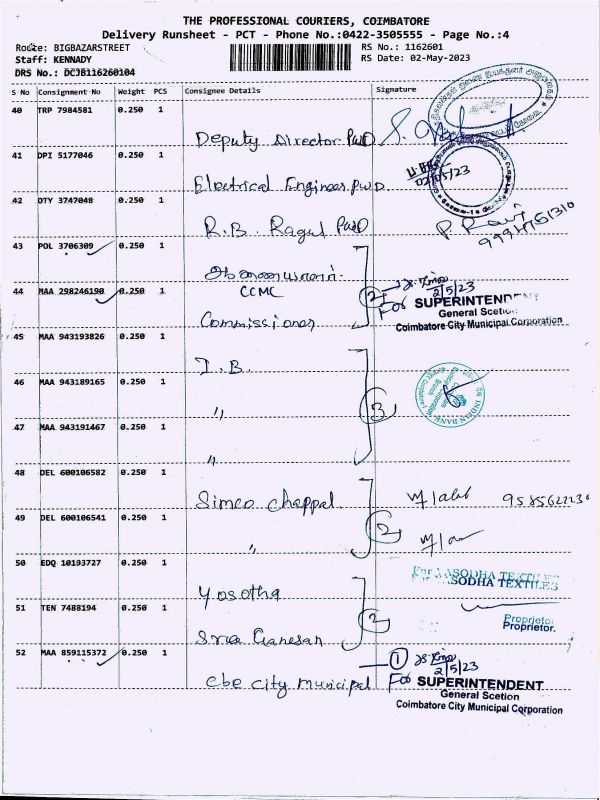 THE PROFESSIONAL COURIERS, COIMBATORE
Delivery Runsheet - PCT - Phone No.:0422-3505555 - Page No.:4
Route: BIGBAZARSTREET
RS No.: 1162601
Staff: KENNADY
RS Date: 02-May-2023
DRS No.: DCJB116260104
S No Consignment No Weight PCS Consignee Details Signature
40 TRP 7984581 0.250 1
Deputy Director PWD
41 DPI 5177046 0.250 1
02/05/23
Electrical Engineer PWD
42 OTY 3747048 0.250 1
R.B. Ragul PWD
P. Ravi
9994761310
43 POL 3706309 0.250 1
ஆணையாளர்.
CCMC
2
2/5/23
44 MAA 298246190 0.250 1
Commissioner
For SUPERINTENDENT
General Scetion
Coimbatore City Municipal Corporation
45 MAA 943193826 0.250 1
I.B.
46 MAA 943189165 0.250 1
"
3
INDIAN BANK
47 MAA 943191467 0.250 1
"
48 DEL 600106582 0.250 1
Simco chappal
49 DEL 600106541 0.250 1
"
2
50 EDQ 10193727 0.250 1
Yosotha
For YASODHA TEXTILES
51 TEN 7488194 0.250 1
2
Proprietor.
Sree Ganesan
52 MAA 859115372 0.250 1
1
2/5/23
cbe city municipal
For SUPERINTENDENT
General Scetion
Coimbatore City Municipal Corporation